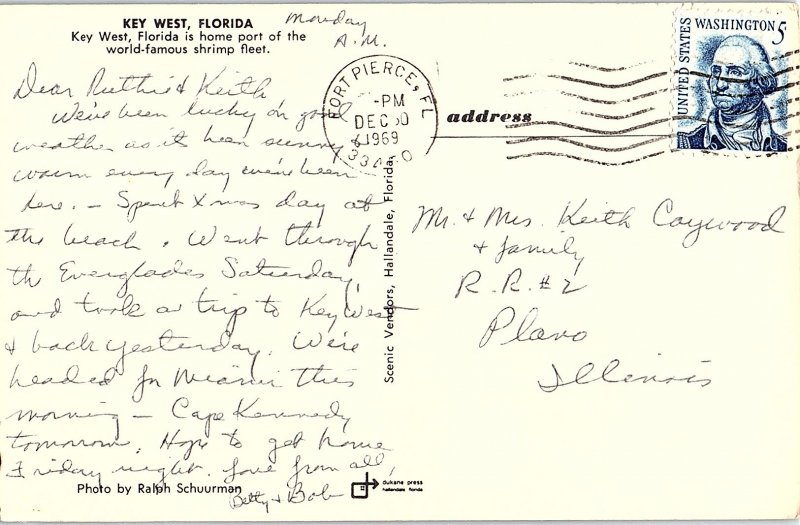 KEY WEST, FLORIDA
Key West, Florida is home port of the
world-famous shrimp fleet.
Monday
A.M.
Dear Ruthie & Keith
We've been lucky on good
weather as it been sunny &
warm every day we've been
here. – Spent Xmas day at
the beach. Went through
the Everglades Saturday,
and took a trip to Key West
& back yesterday. We're
headed for Miami this
morning – Cape Kennedy
tomorrow. Hope to get home
Friday night. Love from all,
Betty & Bob
Photo by Ralph Schuurman
dukane press
hallandale florida
Scenic Vendors, Hallandale, Florida
FORT PIERCE, FL
PM
DEC 30
1969
address
UNITED STATES
WASHINGTON 5¢
Mr. & Mrs. Keith Caywood
& family
R.R. #2
Plano
Illinois